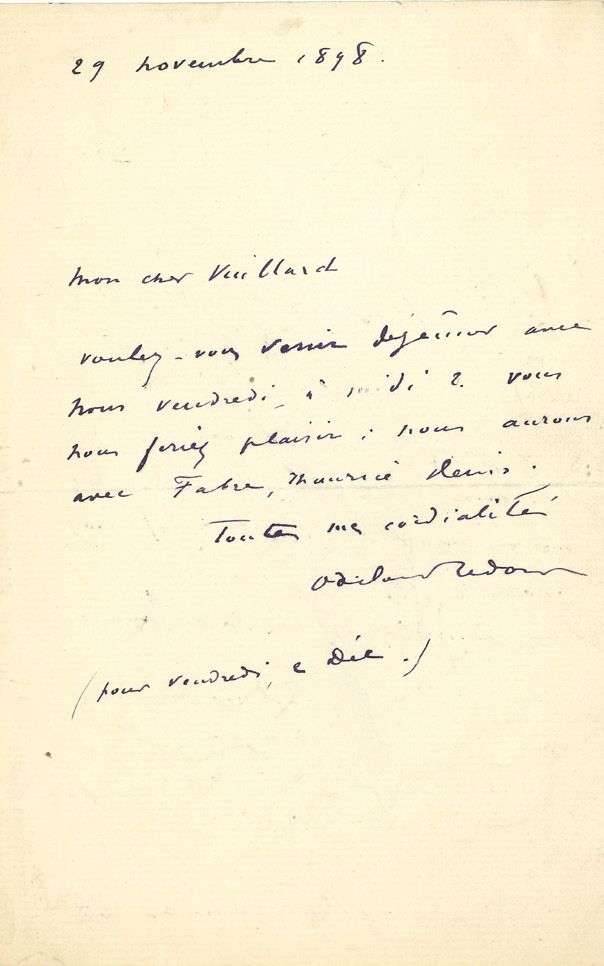 29 novembre 1898.
Mon cher Vuillard
voulez-vous venir déjeûner avec
nous vendredi, à midi ? vous
nous feriez plaisir ; nous aurons
avec Fabre, Maurice Denis.
Toutes mes cordialités
Odilon Redon
(pour vendredi, 2 Déc.)